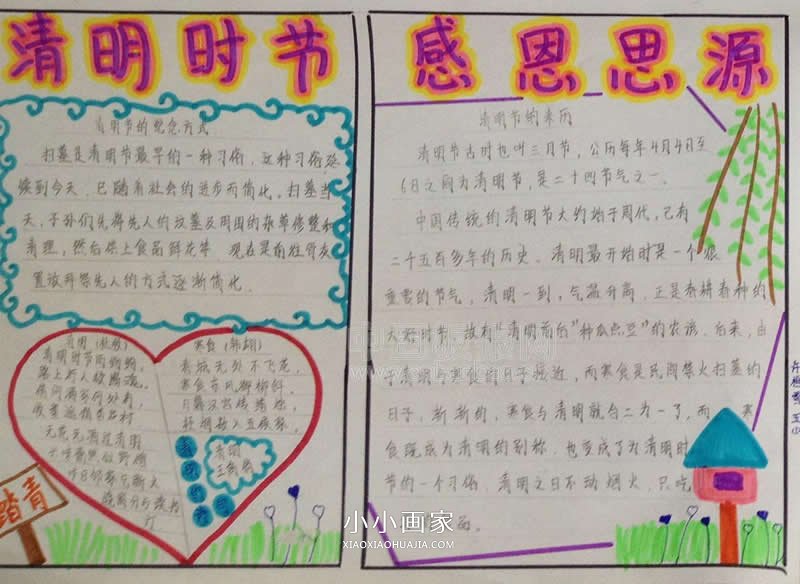 清明时节
清明节的纪念方式
扫墓是清明节最早的一种习俗，这种习俗延
续到今天，已随着社会的进步而简化。扫墓当
天，子孙们先将先人的坟墓及周围的杂草修整和
清理，然后供上食品鲜花等
置放拜祭先人的方式逐渐简化。
清明（杜牧）
清明时节雨纷纷，
路上行人欲断魂。
借问酒家何处有，
牧童遥指杏花村
无花无酒过清明
昨日邻家乞新火
晓窗分与读书
灯
寒食（韩翃）
春城无处不飞花，
寒食东风御柳斜。
日暮汉宫传蜡烛，
轻烟散入五侯家。
清明
踏青
感恩思源
清明节的来历
清明节古时也叫三月节，公历每年4月4日至
6日之间为清明节，是二十四节气之一。
中国传统的清明节大约始于周代，已有
二千五百多年的历史。清明最开始时是一个很
重要的节气，清明一到，气温升高，正是春耕春种的
大好时节，故有“清明前后”种瓜点豆”的农谚。后来，由
于清明与寒食的日子接近，而寒食是民间禁火扫墓的
日子，渐渐的，寒食与清明就合二为一了，而 寒
食既成为清明的别称，也变成了为清明时
节的一个习俗，清明之日不动烟火，只吃
小小画家
XIAOXIAOHUAJIA.COM